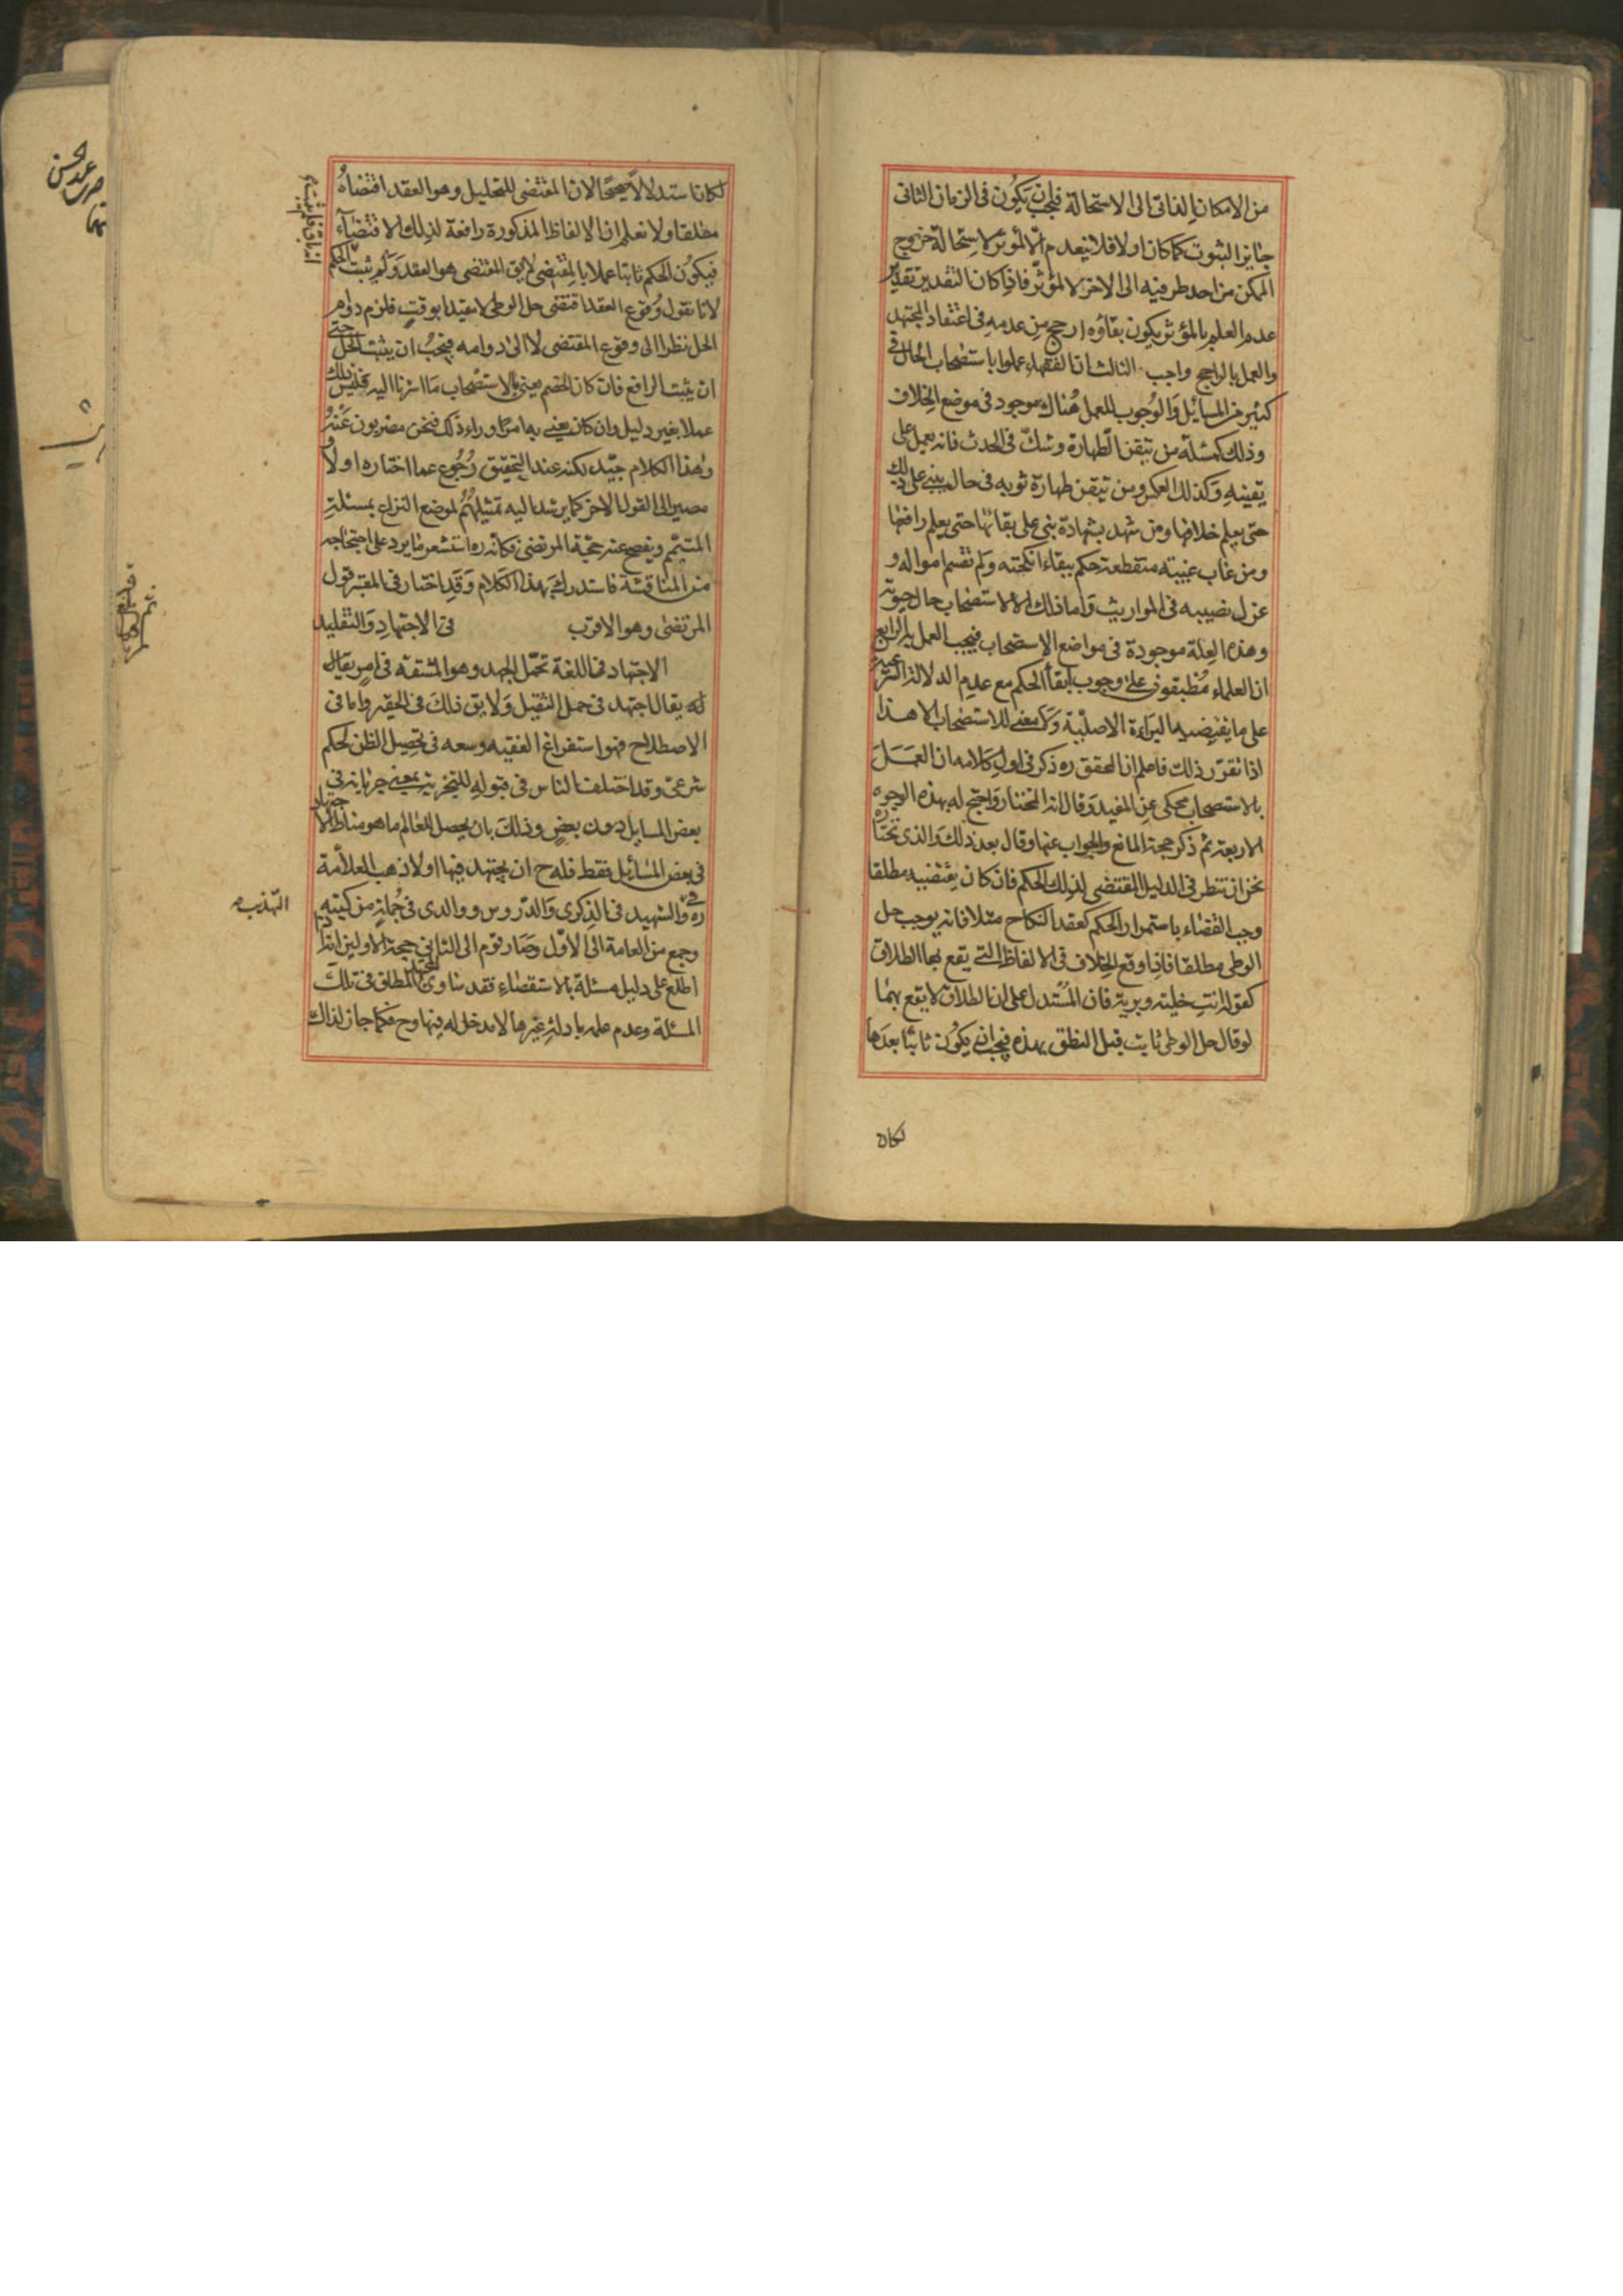 من الامكان الذاتى الى الاستحالة فيجب ان يكون فى الزمان الثانى
جايز الثبوت كما كان اولا فلا ينعدم الا لمؤثر لاستحالة خروج
الممكن من احد طرفيه الى الاخر لا لمؤثر فاذا كان التقدير تقدير
عدم العلم بالمؤثر يكون بقاؤه ارجح من عدمه فى اعتقاد المجتهد
والعمل بالراجح واجب الثالث ان الفقهاء عملوا باستصحاب الحال فى
كثير من المسائل والوجوب للعمل هناك موجود فى موضع الخلاف
وذلك كمسئلة من تيقن الطهارة وشك فى الحدث فانه يعمل على
يقينه وكذلك العكس ومن تيقن طهارة ثوبه فى حال بنى على ذلك
حتى يعلم خلافها ومن شهد بشهادة بنى على بقائها حتى يعلم رافعها
ومن غاب غيبته منقطعة حكم ببقاء انكحته ولم تقسم امواله و
عزل نصيبه فى المواريث وما ذلك الا لاستصحاب حال حيوته
وهذه العلة موجودة فى مواضع الاستصحاب فيجب العمل به الرابع
ان العلماء مطبقون على وجوب ابقاء الحكم مع عدم الدلالة الشرعية
على ما يقتضيه البراءة الاصلية ولا معنى للاستصحاب الا هذا
اذا تقرر ذلك فاعلم ان المحقق ره ذكر فى اول كلامه ان العمل
بالاستصحاب محكى عن المفيد وقال انه المختار واحتج له بهذه الوجوه
الاربعة ثم ذكر حجة المانع والجواب عنها وقال بعد ذلك والذى نختاره
نحن ان ننظر فى الدليل المقتضى لذلك الحكم فان كان يقتضيه مطلقا
وجب القضاء باستمرار الحكم كعقد النكاح مثلا فانه يوجب حل
الوطى مطلقا فاذا وقع الخلاف فى الالفاظ التى يقع بها الطلاق
كقوله انت خلية وبرية فان المستدل على ان الطلاق لا يقع بهما
لو قال حل الوطى ثابت قبل النطق بهذه فيجب ان يكون ثابتا بعدها
لكان
لكان استدلالا صحيحا لان المقتضى للتحليل وهو العقد اقتضاه
مطلقا ولا نعلم ان الالفاظ المذكورة رافعة لذلك الاقتضاء
فيكون الحكم ثابتا عملا بالمقتضى لا يق المقتضى هو العقد ولم يثبت
لانا نقول وقوع العقد اقتضى حل الوطى لا مقيدا بوقت فلزم دوام
الحل نظرا الى وقوع المقتضى لا الى دوامه فيجب ان يثبت الحل حتى
ان يثبت الرافع فان كان الخصم يعنى بالاستصحاب ما اشرنا اليه فليس ذلك
عملا بغير دليل وان كان يعنى به امرا وراء ذلك فنحن مضربون عنه
وهذا الكلام جيد لكنه عند التحقيق رجوع عما اختاره اولا و
مصير الى القول الاخر كما يرشد اليه تمثيلهم لموضع النزاع بمسئلة
المتيمم ويفصح عنه حجة المرتضى فكانه ره استشعر ما يرد على احتجاجه
من المناقشة فاستدرك بهذا الكلام وقد اختار فى المعتبر قول
المرتضى وهو الاقرب فى الاجتهاد والتقليد
الاجتهاد فى اللغة تحمل الجهد وهو المشقة فى امر يقال
له يقال اجتهد فى حمل الثقيل ولا يق ذلك فى الحقير واما فى
الاصطلاح فهو استفراغ الفقيه وسعه فى تحصيل الظن لحكم
شرعى وقد اختلف الناس فى قبوله للتجزية بمعنى جريانه فى
بعض المسايل دون بعض وذلك بان يحصل للعالم ما هو مناط الاجتهاد
فى بعض المسائل فقط فله ح ان يجتهد فيها اولا ذهب العلامة
ره فى والشهيد فى الذكرى والدروس ووالدى فى جملة من كتبه
التهذيب
وجمع من العامة الى الاول وصار قوم الى الثانى حجة الاولين انه اذا
اطلع على دليل مسئلة بالاستقصاء فقد ساوى المجتهد المطلق فى تلك
المسئلة وعدم علمه بادلة غيرها لا مدخل له فيها وح فكما جاز لذاك